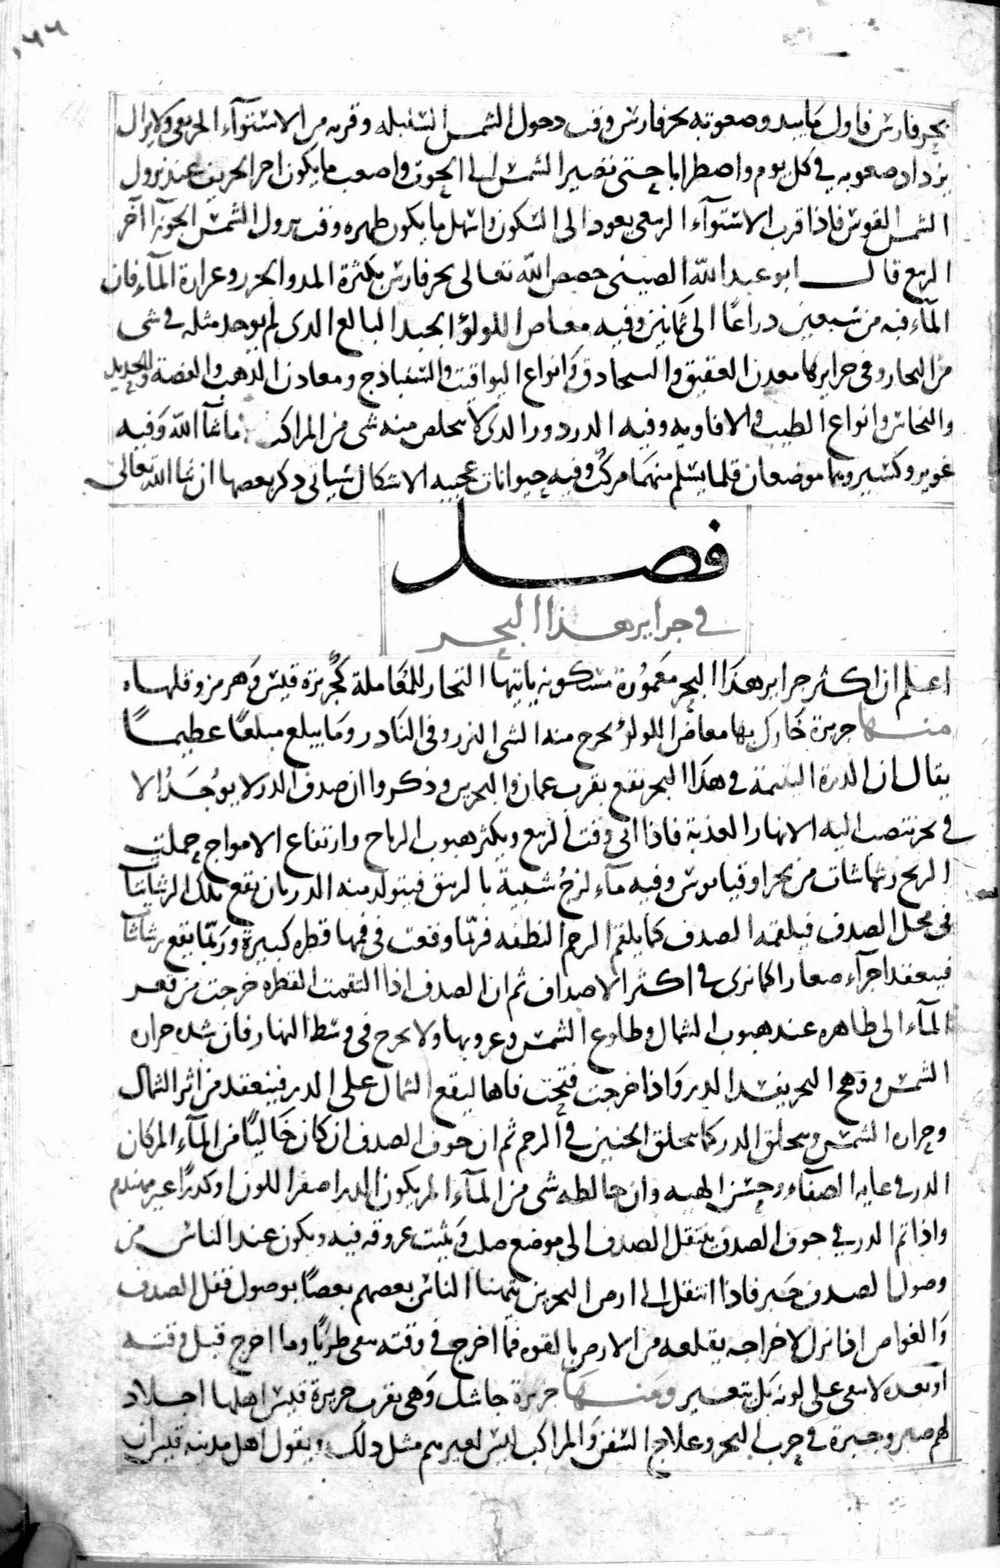 ١٦٦
بحر فارس فاول ما يبدو صعوبة بحر فارس وقت دخول الشمس السنبله وقربه من الاستوآء الخريفي ولا يزال
يزداد صعوبه في كل يوم واضطرابا حتى تصير الشمس الى الحوت واصعب ما يكون اخر الخريف عند نزول
الشمس القوس فاذا قرب الاستوآء الربيعي يعود الى السكون واسهل ما يكون ظهره وقت نزول الشمس الجوزآ اخر
الربيع قال ابو عبد الله الصيني خصص الله تعالى بحر فارس بكثرة المد والجزر وغزارة المآء فان
المآء فيه من سبعين ذراعًا الى ثمانين وفيه مغاص اللولؤ الجيد البالغ الذي لم يوجد مثله في شي
من البحار وفي جزايرها معدن العقيق والبجادق وانواع اليواقيت والسنباذج ومعادن الذهب والفضة والحديد
والنحاس وانواع الطيب والافاويه وفيه الدردور الذي لا يتخلص منه شي من المراكب ما شآ الله وفيه
عوير وكسير وهما موضعان قلما يسلم منهما مركب وفيه حيوانات عجيبه الاشكال سياتي ذكر بعضها ان شا الله تعالى
فصل
في جزاير هذا البحر
اعلم ان اكثر جزاير هذا البحر معمورة مسكونه ياتيها التجار للمعاملة كجزيرة قيس وهرمز وقلهاه
منها جزيرة خارك بها مغاض اللولؤ يخرج منه الشي النزر وفي النادر وما يبلع مبلغا عظيما
يقال ان الدرة اليتيمة في هذا البحر تقع بقرب عمان والبحرين وذكروا ان صدف الدر لا يوجد الا
في بحر تنصب اليه الانهار العذبة فاذا اتى وقت الربيع ويكثر هبوب الرياح وارتفاع الامواج حملت
الريح رشاشات من بحر اوقيانوس وفيه مآء لزج شبيه بالزيبق فيتولد منه الدر بان يقع ذلك الرشاشا
في محل الصدف فيلقمه الصدف كما يلقم الرحم النطفه فربما وقعت في فمها قطره كبيرة وربما يقع رشاشا
فينعقد اجزآء صغارا كما نرى في اكثر الاصداف ثم ان الصدف اذا التقمت القطره خرجت من قعر
المآء الى ظاهره عند هبوب الشمال وطلوع الشمس وغروبها ولا يخرج في وسط النهار فان شده حرارة
الشمس ووهج البحر يفسد الدر واذا خرجت فتحت فاها ليقع الشمال على الدر فينعقد من اثر الشمال
وحراره الشمس ويتخلق الدر كما يتخلق الجنين في الرحم ثم ان جوف الصدف ان كان خاليًا من المآء المر كان
الدر في غايه الصفآء وحسن الهيه وان خالطه شي من المآء المر يكون الدر اصفر اللون او كدرًا غير مهندم
واذا تم الدر في جوف الصدف ينتقل الصدف الى موضع صلب ويثبت عروقه فيه ويكون عند الناس من
وصول الصدف خبر فاذا انتقل الى ارض البحرين يتهنا الناس بعضهم بعضا بوصول قفل الصدف
والغواص اذا نزل لاخراجه يقلعه من الارض بالقوه فما اخرج في وقته يبقى طريًا وما اخرج قبل وقته
او بعده لا يبقى على لونه بل يتغير ومنها جزيرة جاشك وهي بقرب جزيرة قيس اهلها اجلاد
لهم صبر وخبرة في حرب البحر وعلاج السفن والمراكب ليس لغيرهم مثل ذلك ويقول اهل مدينة قيس ان